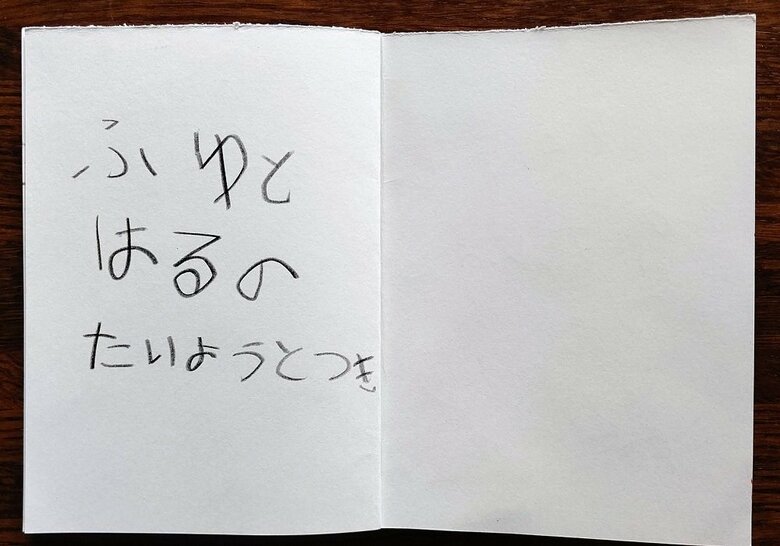 ふゆと
はるの
たいようとつき